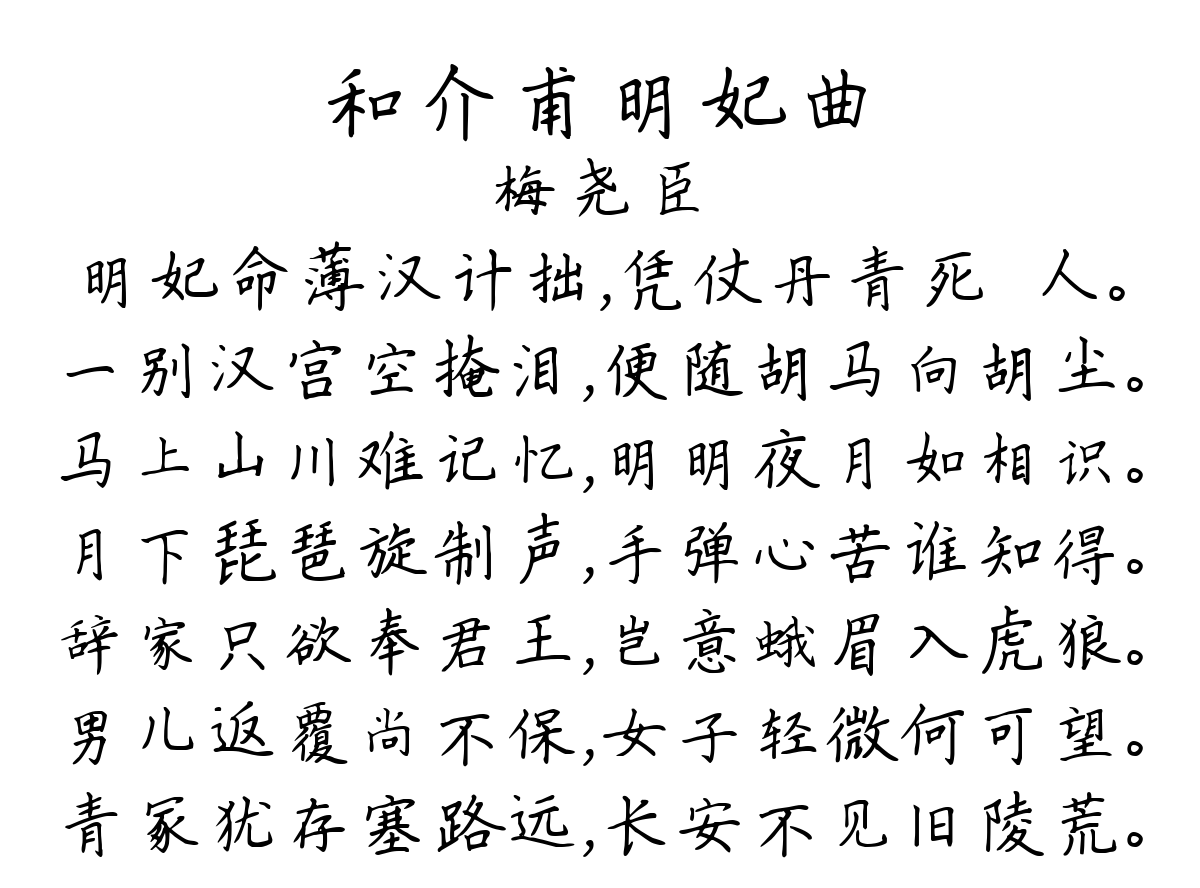 和介甫明妃曲
梅尧臣
明妃命薄汉计拙,凭仗丹青死 人。
一别汉宫空掩泪,便随胡马向胡尘。
马上山川难记忆,明明夜月如相识。
月下琵琶旋制声,手弹心苦谁知得。
辞家只欲奉君王,岂意蛾眉入虎狼。
男儿返覆尚不保,女子轻微何可望。
青冢犹存塞路远,长安不见旧陵荒。